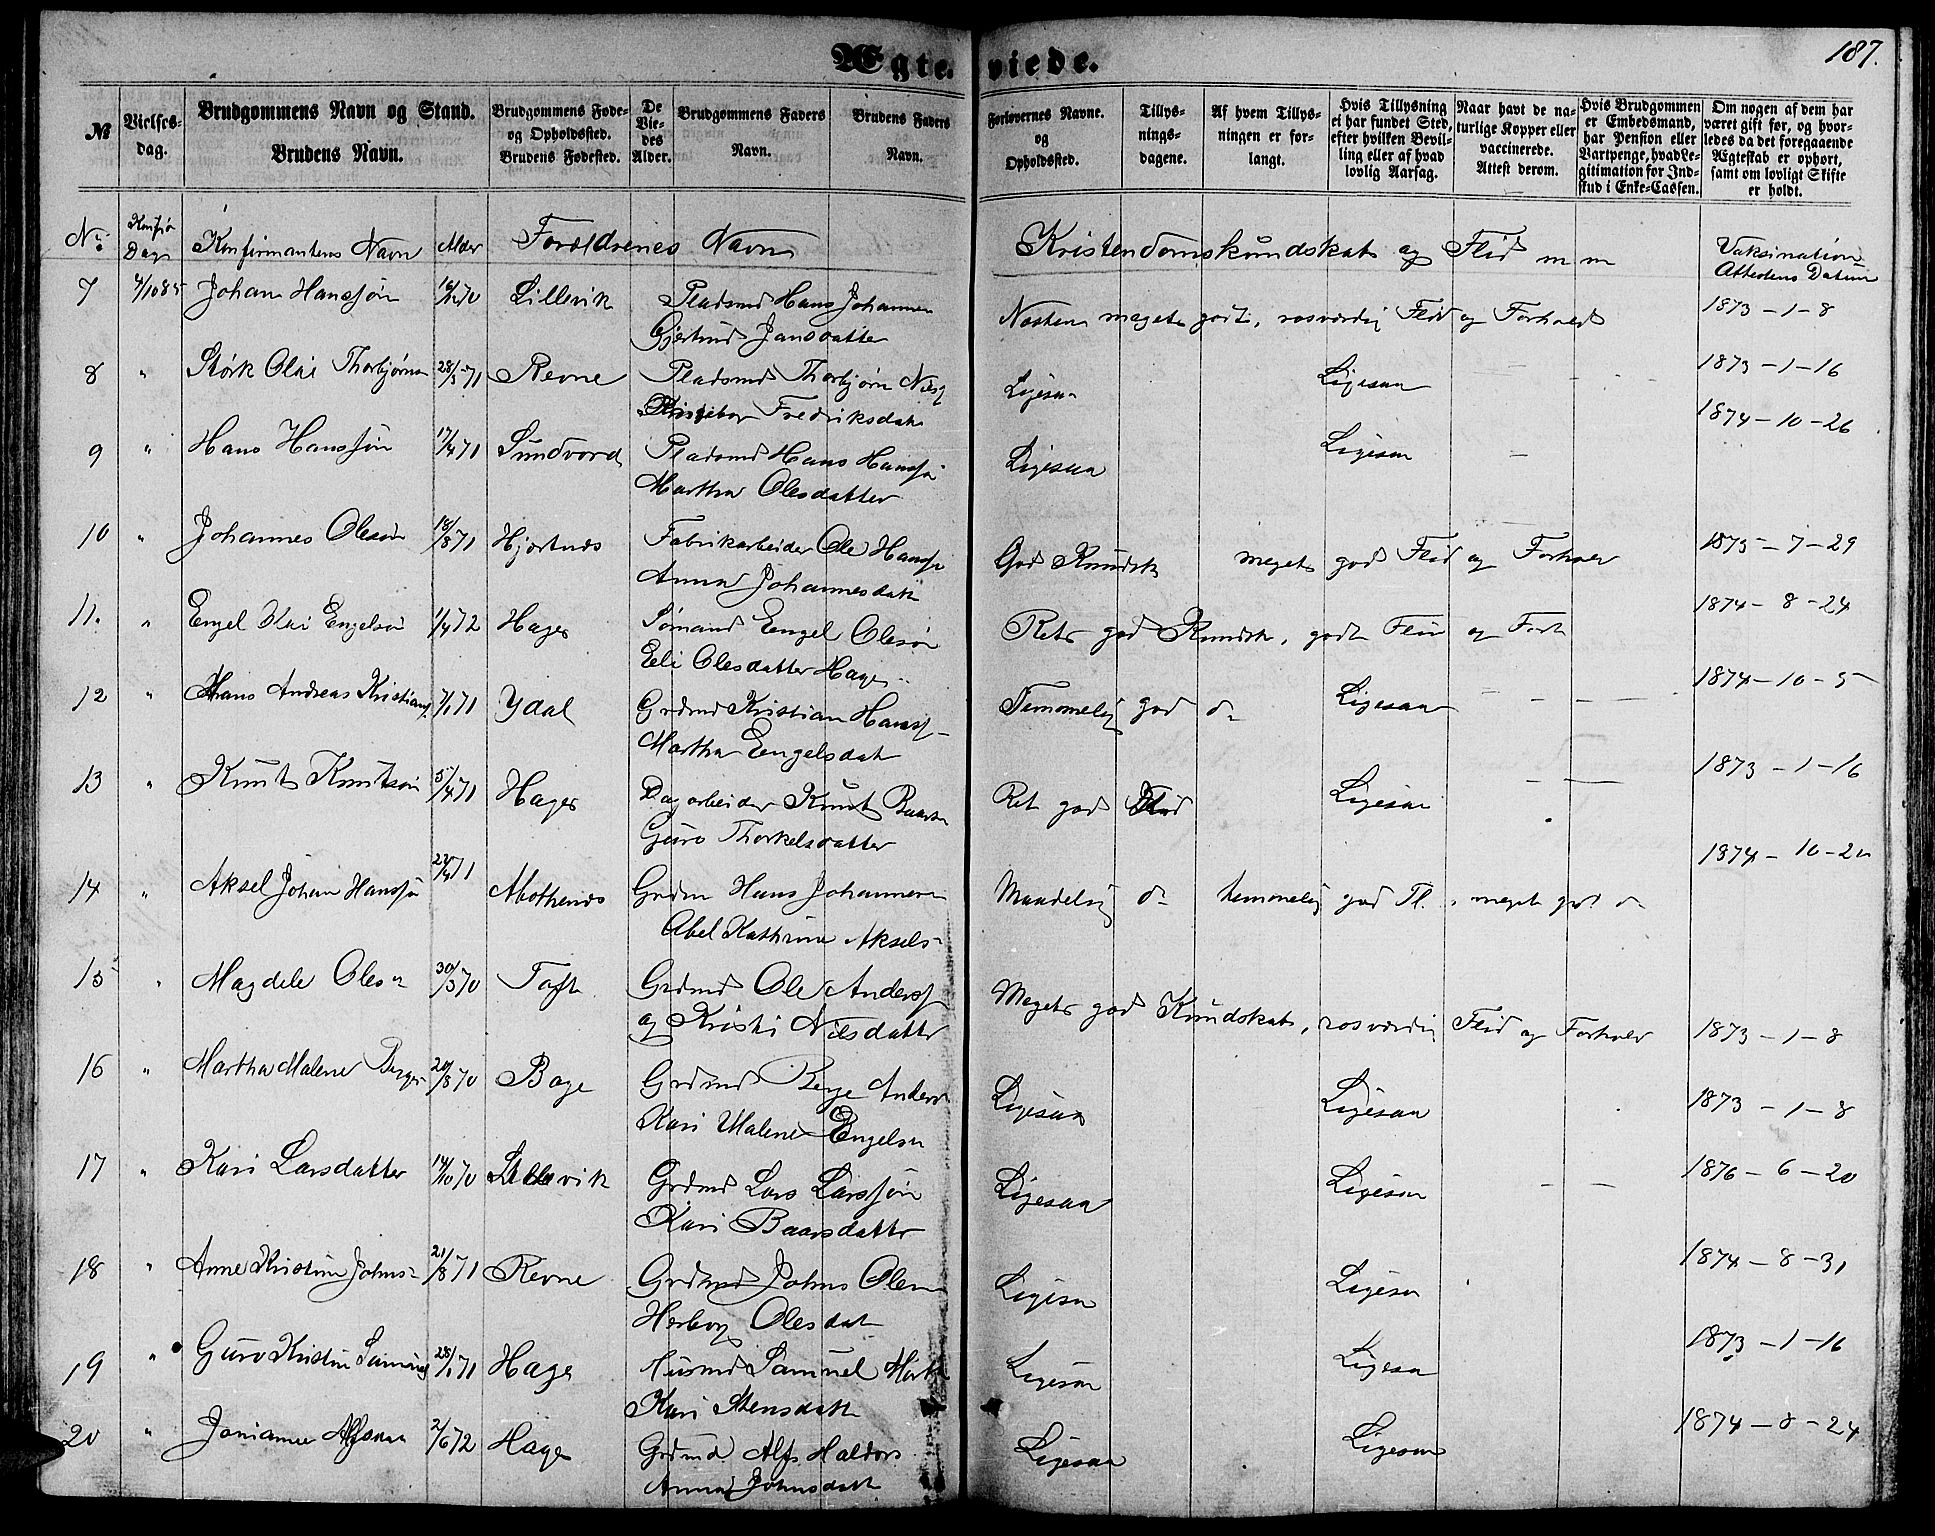 Ægteviede.
187.
№
Vielses-dag.
Brudgommens Navn og Stand.
Brudens Navn.
Brudgommens Føde- og Opholdssted.
Brudens Fødested.
De Viedes Alder.
Brudgommens Faders Navn.
Brudens Faders Navn.
Forlovernes Navne. og Opholdssted.
Tillysningsdagene.
Af hvem Tillysningen er forlangt.
Hvis Tillysning ei har fundet Sted, efter hvilken Bevilling eller af hvad lovlig Aarsag.
Naar havt de naturlige Kopper eller vaccinerede. Attest derom.
Hvis Brudgommen er Embedsmand, har Pension eller Vartpenge, hvad Legitimation for Indskud i Enke-Cassen.
Om nogen af dem har været gift før, og hvorledes da det foregaaende Ægteskab er ophørt, samt om lovligt Skifte er holdt.
No. Dage Konfirmantens Navn Alder Forældrenes Navn Kristendomskundskab og Flid m m Vaksinations Attestens Datum
7 4/10 85 Johan Hanssøn 70 Lillevik Pladsmd Hans Johannes Næsten meget godt, rosværdig Flid og Forhold 1873-1-8
Gjertrud Jansdatter
8 " Størk Olai Thorbjørns 28/5 71 Revne Pladsmd Thorbjørn Nils Ligesaa Ligesaa 1873-1-16
Fredriksdat
9 " Hans Hanssøn 17/4 71 Sundvord Pladsmd Hans Hanssø Ligesaa Ligesaa - 1874-10-26
Martha Olesdatter
10 " Johannes Olesøn 18/8 71 Hjørtnes Fabrikarbeider Ole Hanss God Kundsk meget god Flid og Forhold 1875-7-29
Anna Johannesdat
11. " Engel Olai Engelsøn 1/4 72 Hage Sømand Engel Olesøn Ret god Kundsk, godt Flid og Forh 1874-8-24
Eli Olesdatter Hage
12 " Hans Andreas Kristians 7/1 71 Ydal Grdmd Kristian Hanss Temmelig god d- Ligesaa 1874-10-5
Martha Engelsdat
13 " Knut Knutsøn 5/4 71 Hage Dagarbeider Knut Baards Ret god Flid Ligesaa 1873-1-16
Guro Thorkelsdatter
14 " Aksel Johan Hanssø 71 Grdm Hans Johannes Maadelig d- temmelig god Fl., meget god d- 1874-10-20
Abel Kathrine Aksels-
15 " Magdele Oles 30/3 70 Toft Grdmd Ole Anderss Meget god Kundskab, rosværdig Flid og Forhold 1873-1-8
og Kristi Nilsdattr
16 " Martha Malene Berges 20/8 70 Bage Grdmd Berge Anders Ligesaa Ligesaa 1873-1-8
Kari Malene Engels
17 " Kari Larsdatter 14/10 70 Lillevik Grdmd Lars Larssøn Ligesaa Ligesaa 1876-6-20
Kari Baarsdattr
18 " Anne Kristine Johns- 21/8 71 Revne Grdmd Johns Olsen Ligesaa Ligesaa 1874-8-31
Herborg Olesdat
19 " Guro Kristine Samuels 28/1 71 Hage Husmd Samuel Ligesaa Ligesaa 1873-1-16
Kari Stensdatt
20 " 2/6 72 Hage Grdmd Alf Haldors Ligesaa Ligesaa 1874-8-24
Anna Johnsdatt